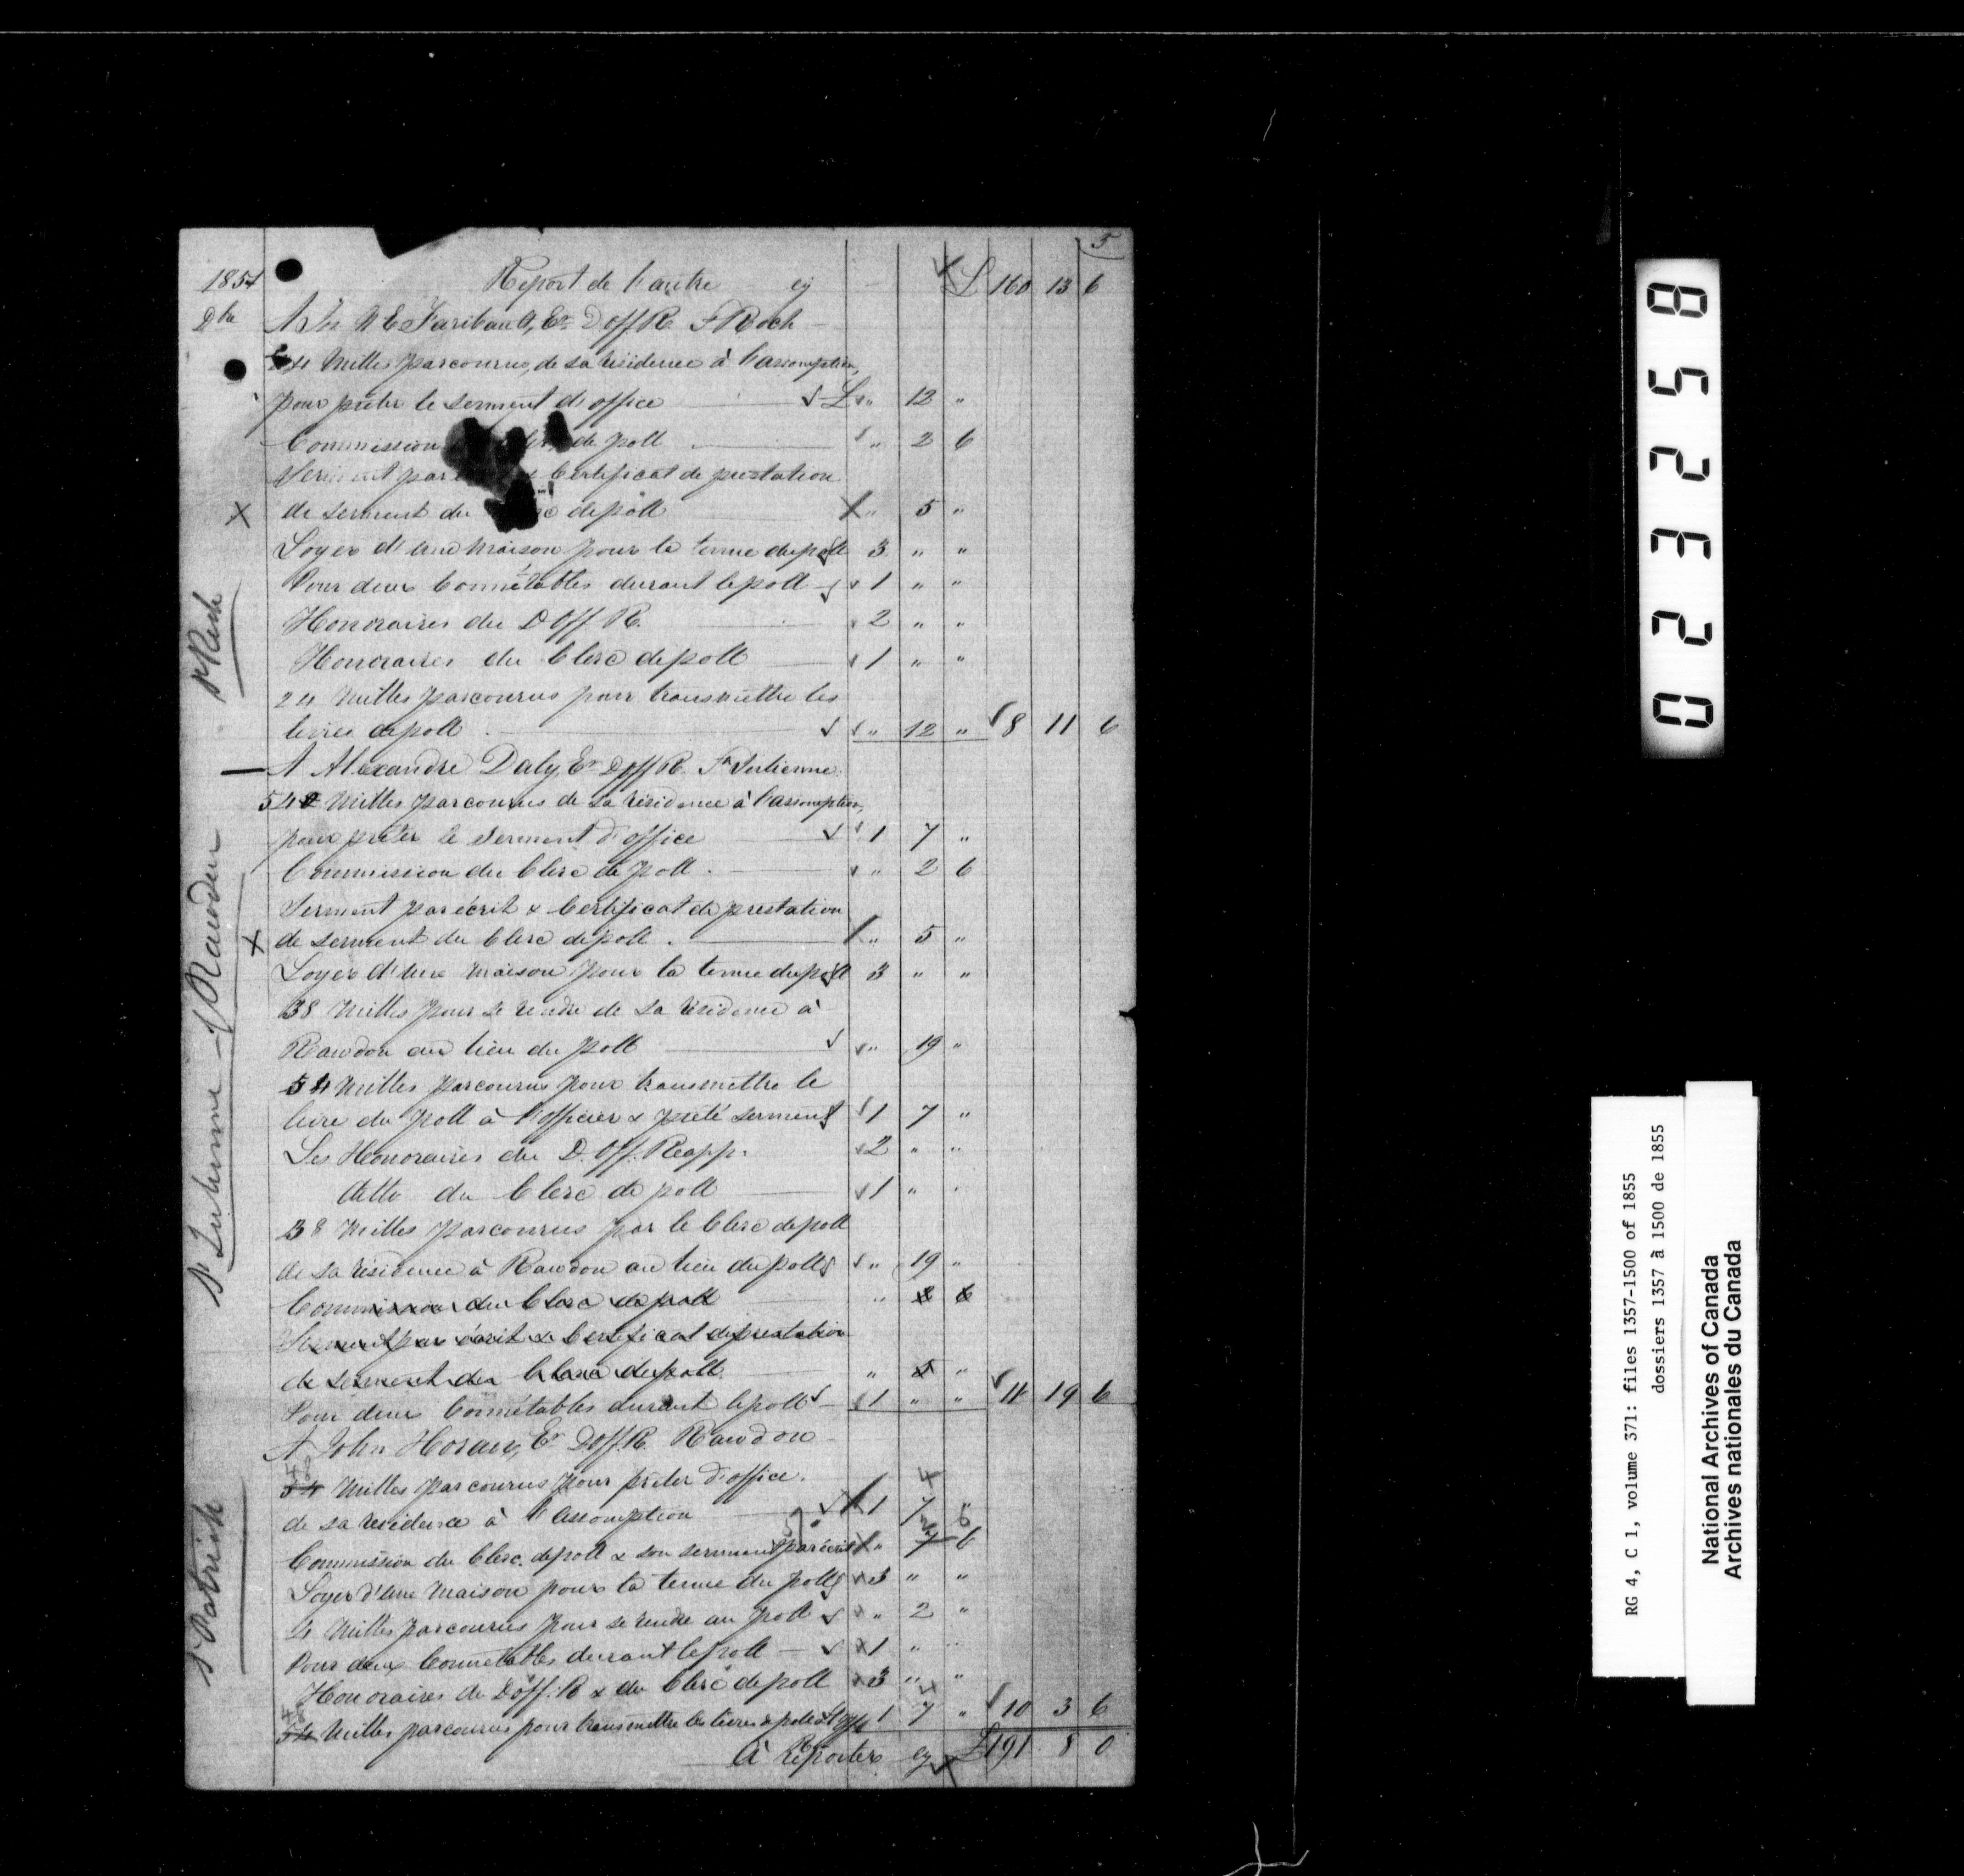 5
1854 Report de l'autre cy £ 160 13 6
A Jos N E Faribault, Er D off. R. St Roch
24 Milles parcourus, de sa résidence à l'assomption,
pour prêter le serment d'office £ " 12 "
Commission de poll " 2 6
Serment par & Certificat de prestation
X de serment du de poll " 5 "
Loyer d'une maison pour la tenue du poll 3 " "
Pour deux Connétables durant le poll 1 " "
Honoraires du D Off R. 2 " "
Honoraires du Clerc de poll 1 " "
St Roch
24 Milles parcourus pour transmettre les
livres de poll " 12 " 8 11 6
A Alexandre Daly, Er D off R. St Julienne
54 Milles parcourus de sa résidence à l'assomption,
pour prêter le serment d'office 1 7 "
Commission du Clerc de poll. " 2 6
Serment par écrit & Certificat de prestation
X de serment du Clerc de poll. " 5 "
Loyer d'une maison pour la tenue du poll 3 " "
38 Milles pour se rendre de sa résidence à
Rawdon au lieu du poll " 19 "
54 Milles parcourus pour transmettre le
livre du poll à l'officier & prêté serment 1 7 "
Les Honoraires du D. Off. Rapp. 2 " "
ditto du Clerc de poll 1 " "
St Julienne Rawdon
38 Milles parcourus par le Clerc de poll
de sa résidence à Rawdon au lieu du poll " 19 "
Commission du Clerc de poll " 2 6
Serment par écrit & Certificat de prestation
de serment du Clerc de poll " 5 "
Pour deux Connétables durant le poll 1 " " 11 19 6
A John Horan, Er D off. R. Rawdon
54 Milles parcourus pour prêter d'office. 4
de sa résidence à l'assomption 1 7 "
Commission du Clerc. de poll & son serment par écrit " 7 6
Loyer d'une maison pour la tenue du poll 3 " "
4 Milles parcourus pour se rendre au poll " 2 "
Pour deux Connétables durant le poll 1 " "
Honoraires du D off. R & du Clerc de poll 3 " "
St Patrick
54 Milles parcourus pour transmettre les livres de poll 1 7 " 10 3 6
à Reporter cy £191 8 0
02358
RG 4, C 1, volume 371: files 1357-1500 of 1855
dossiers 1357 à 1500 de 1855
National Archives of Canada
Archives nationales du Canada